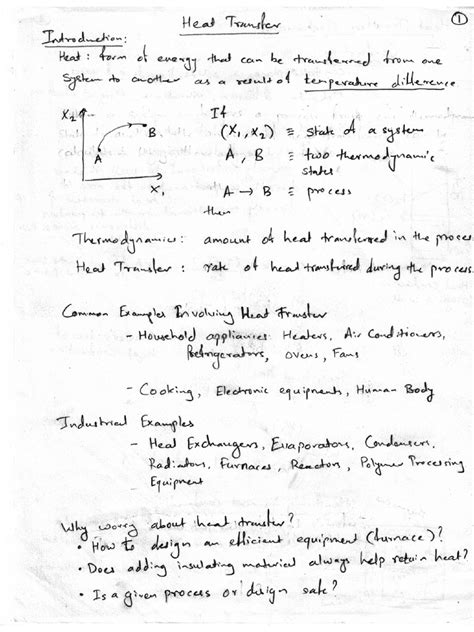 Heat Transfer
1
Introduction:
Heat: form of energy that can be transferred from one
system to another as a result of temperature difference
X2
B
A
X1
If
(X1, X2) ≡ state of a system
A, B ≡ two thermodynamic
states
A → B ≡ process
then
Thermodynamics: amount of heat transferred in the process
Heat Transfer: rate of heat transferred during the process.
Common Examples Involving Heat Transfer
- Household appliances Heaters, Air Conditioners,
Refrigerators, ovens, Fans
- Cooking, Electronic equipments, Human Body
Industrial Examples
- Heat Exchangers, Evaporators, Condensers,
Radiators, Furnaces, Reactors, Polymer Processing
Equipment
Why worry about heat transfer?
• How to design an efficient equipment (furnace)?
• Does adding insulating material always help retain heat?
• Is a given process or design safe?